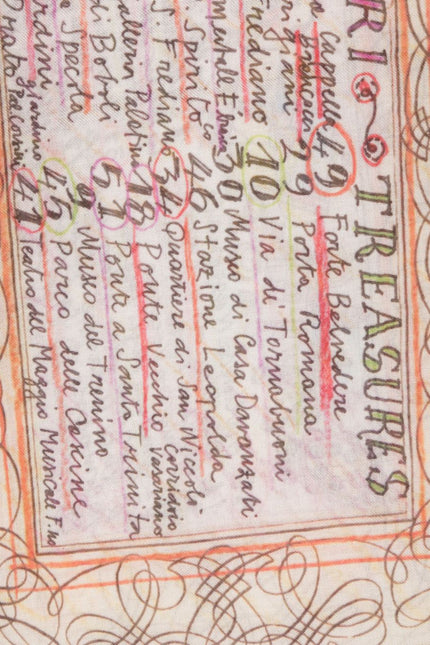 RI TREASURES
Cappello 49 Forte Belvedere
Porta Romana
Frediano 10 Via de Tornabuoni
30 Museo di Casa Davanzati
Spirito 46 Stazione Leopolda
Frediano Quartiere di San Niccolò
Palatina 18 Ponte Vecchio Corridoio Vasariano
di Boboli Ponte a Santa Trinita
Specola 9 Museo del Trenino
dini giardino 45 Parco delle Cascine
41 Teatro del Maggio Musicale F.no